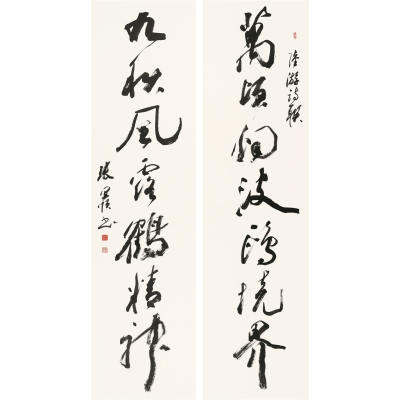 陸游詩聯
萬頃烟波鷗境界
九秋風露鶴精神
張